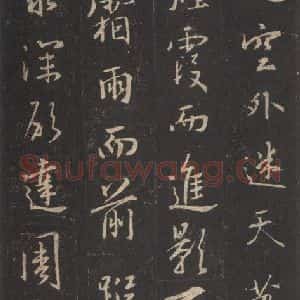 空外迷天
煙霞而進影
霜雨而前蹤
求深願達周
Shufawang.cn